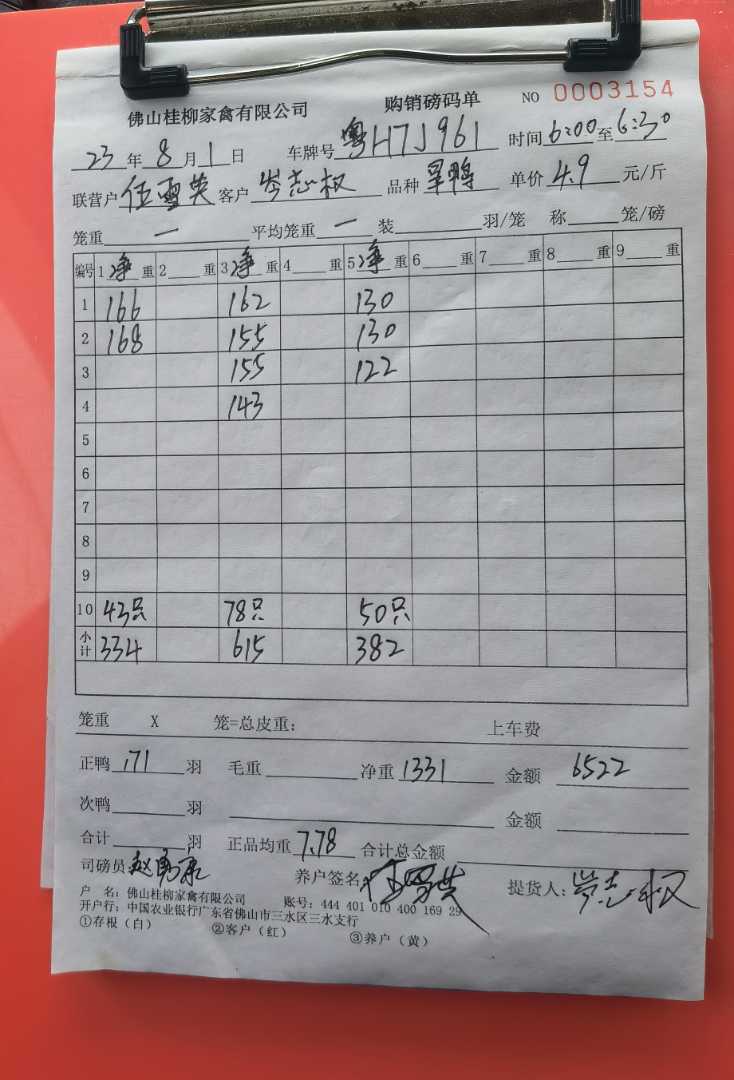 佛山桂柳家禽有限公司 购销磅码单 NO 0003154
23年8月1日 车牌号粤H7J961 时间6:00至6:30
联营户伍雪英 客户岑志权 品种旱鸭 单价4.9元/斤
笼重 一 平均笼重 一 装 羽/笼 称 笼/磅
编号 1净重 2 重 3净重 4 重 5净重 6 重 7 重 8 重 9 重
1 166 162 130
2 168 155 130
3 155 122
4 143
5
6
7
8
9
10 43只 78只 50只
小计 334 615 382
笼重 X 笼=总皮重: 上车费
正鸭 171 羽 毛重 净重 1331 金额 6522
次鸭 羽 金额
合计 羽 正品均重 7.78 合计总金额
司磅员 赵勇康 养户签名 伍雪英 提货人: 岑志权
户 名: 佛山桂柳家禽有限公司 账号: 444 401 010 400 169 29
开户行: 中国农业银行广东省佛山市三水区三水支行
①存根(白) ②客户(红) ③养户(黄)